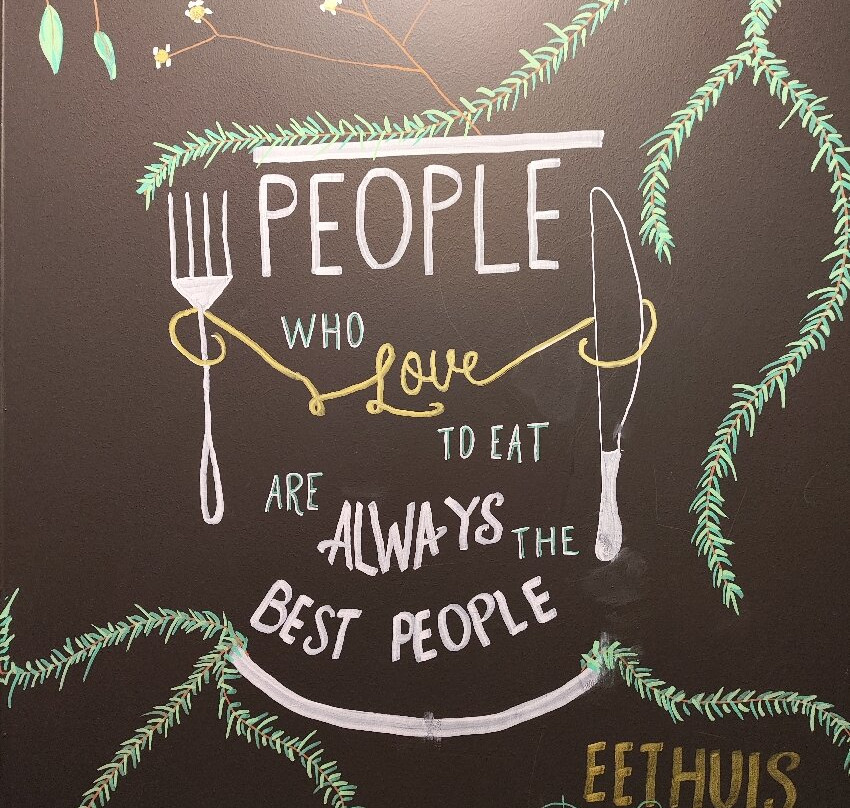 PEOPLE
WHO
Love
TO EAT
ARE
ALWAYS THE
BEST PEOPLE
EETHUIS